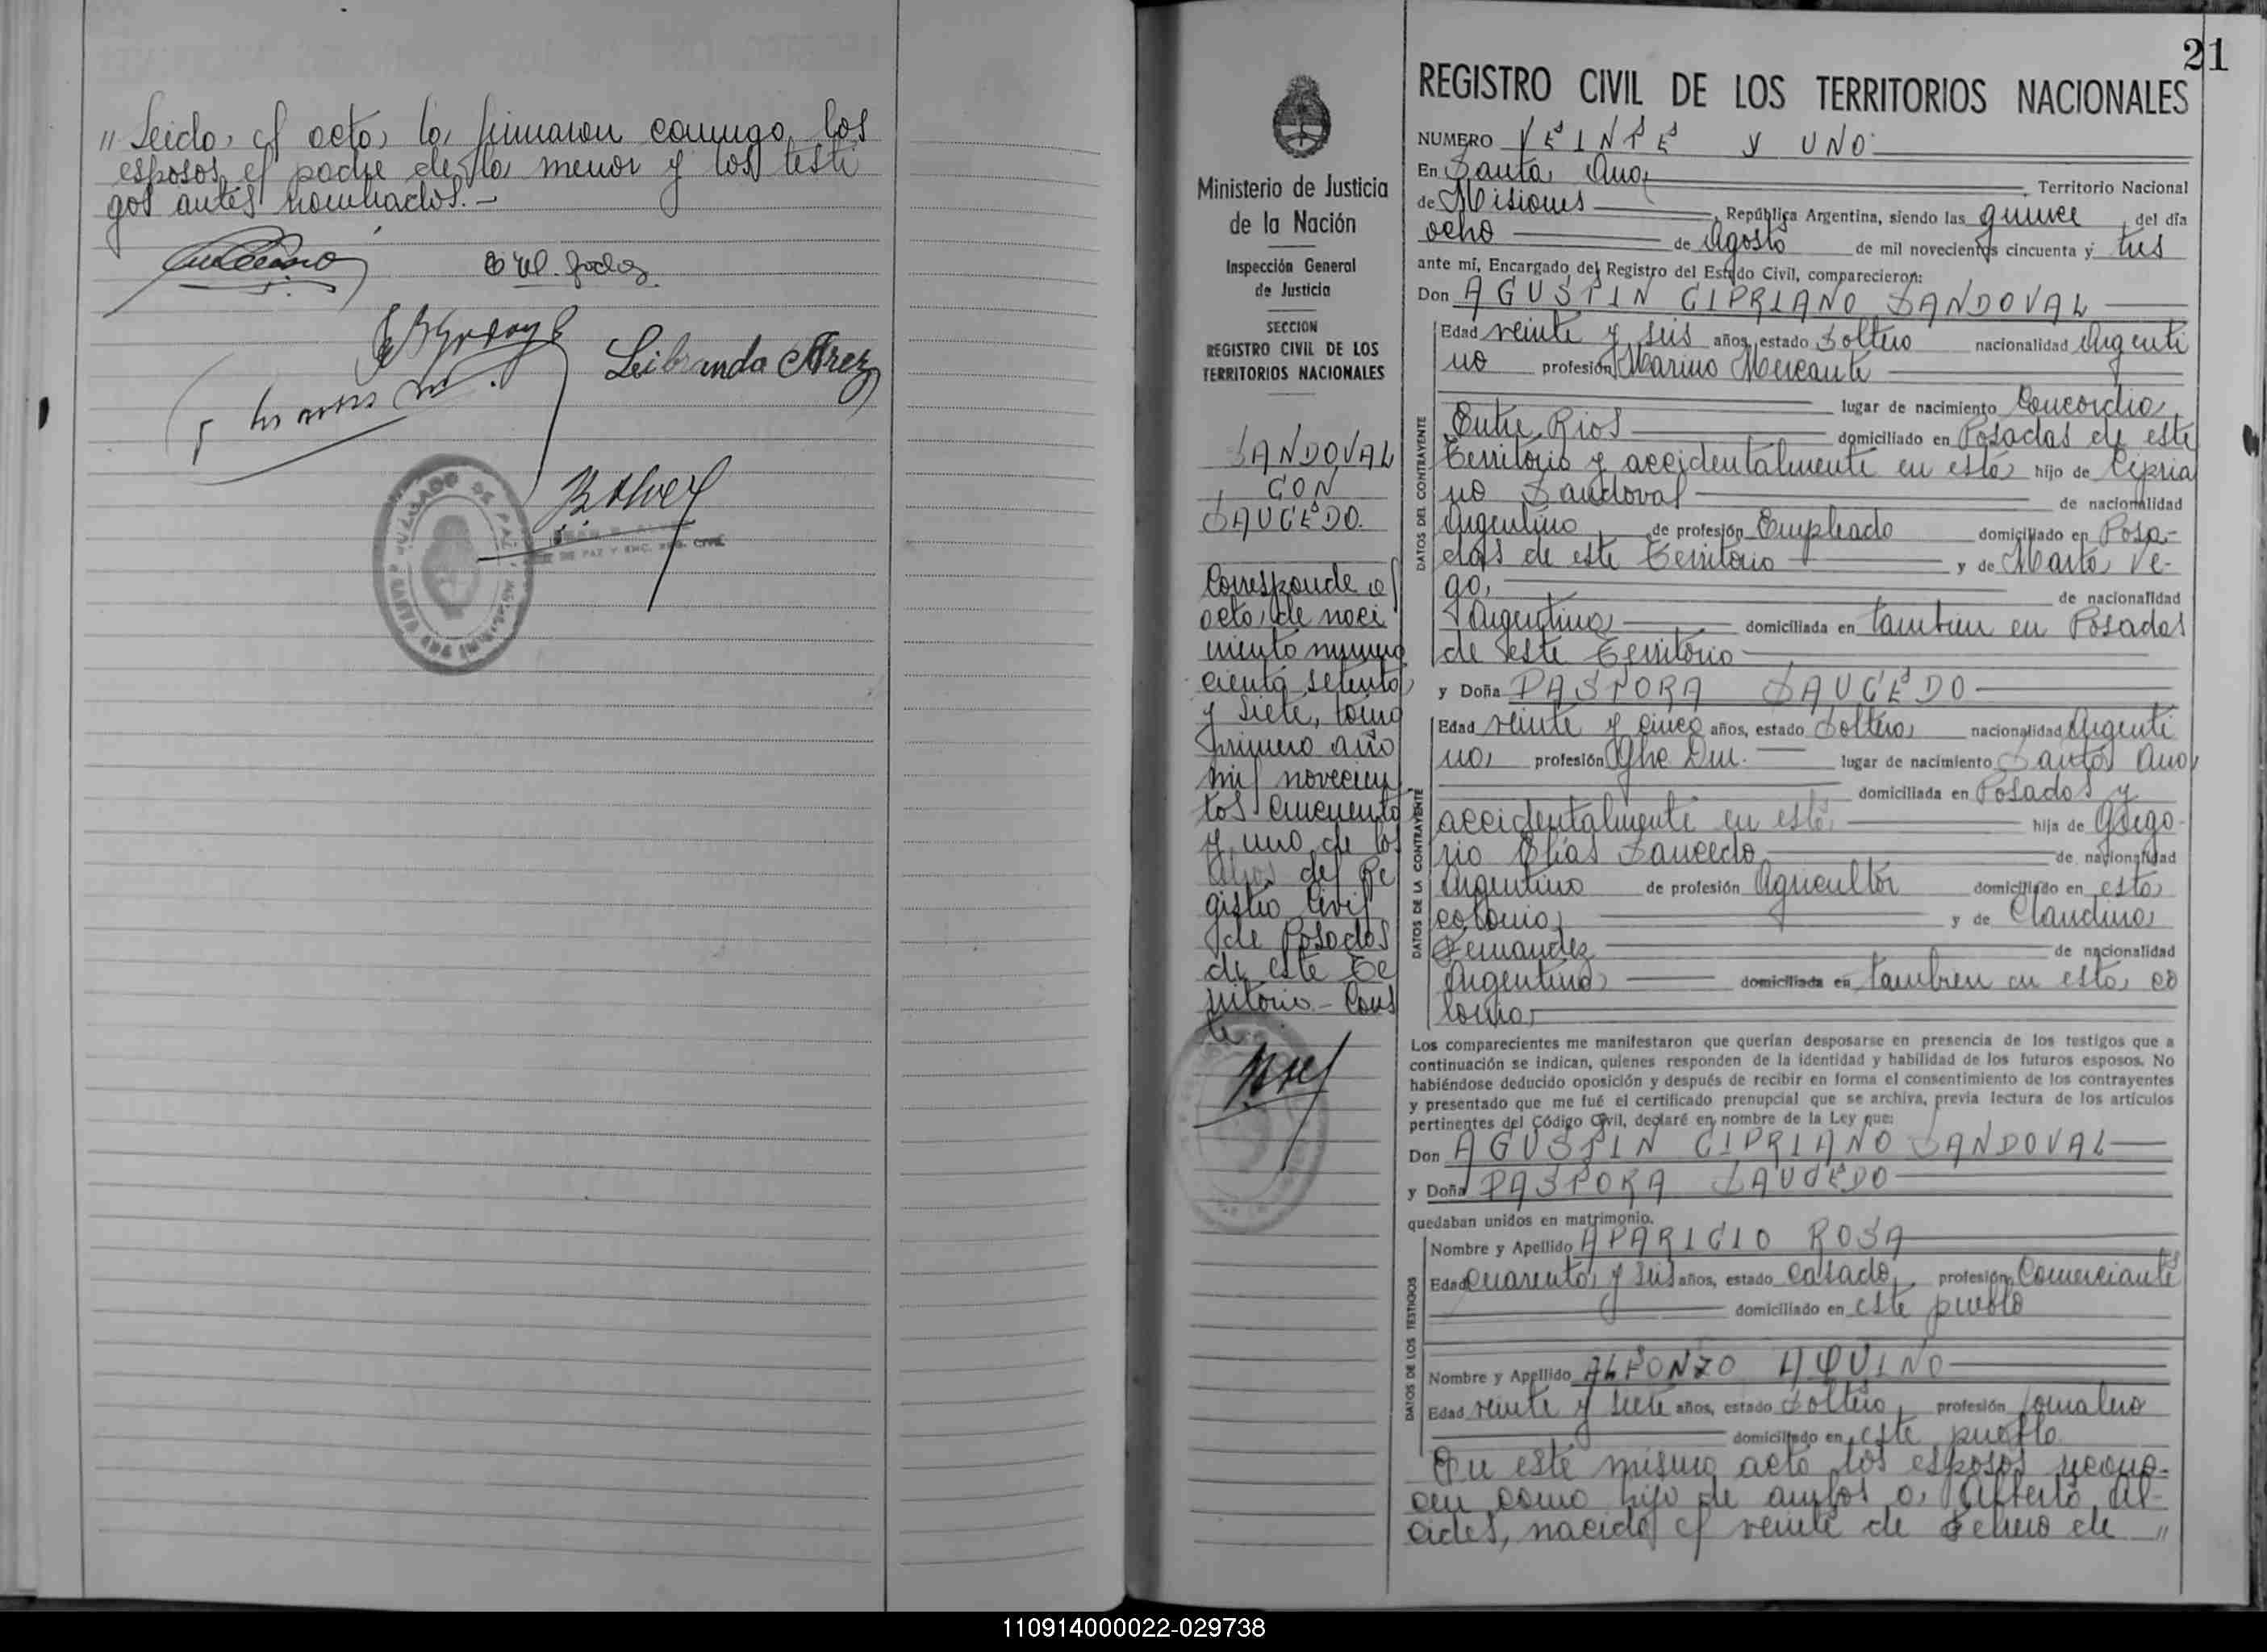 " Leida, el acta, la firmaron conmigo, los
esposos, el padre de la menor y los testi
gos antes nombrados.-
Leibranda Arez
JUZGADO DE PAZ
DE PAZ Y ENC. REG. CIVIL
21
Ministerio de Justicia
de la Nación
Inspección General
de Justicia
SECCION
REGISTRO CIVIL DE LOS
TERRITORIOS NACIONALES
SANDOVAL
CON
SAUCEDO.
Corresponde al
acta, de naci
miento numero
ciento setenta
y siete, tomo
primero año
mil novecien
tos cincuenta
y uno, de los
libros del Re
gistro Civil
de Posadas
de este Te
rritorio - Cons
te
REGISTRO CIVIL DE LOS TERRITORIOS NACIONALES
NUMERO VEINTE Y UNO
En Santa Ana, Territorio Nacional
de Misiones, República Argentina, siendo las quince del día
ocho de Agosto de mil novecientos cincuenta y tres
ante mí, Encargado del Registro del Estado Civil, comparecieron:
Don AGUSTIN CIPRIANO SANDOVAL
DATOS DEL CONTRAYENTE
Edad veinte y seis años, estado Soltero nacionalidad Argenti
no profesión Marino Mercante
lugar de nacimiento Concordia,
Entre Rios domiciliado en Posadas de este
Territorio y accidentalmente en esta, hijo de Cipria
no Sandoval de nacionalidad
Argentino de profesión Empleado domiciliado en Posa-
das de este Territorio y de Marta, Ve-
ga, de nacionalidad
Argentina, domiciliada en tambien en Posadas
de este Territorio
y Doña PASTORA SAUCEDO
DATOS DE LA CONTRAYENTE
Edad veinte y cinco años, estado Soltera, nacionalidad Argenti
na, profesión Qhe Dm. lugar de nacimiento Santa, Ana,
domiciliada en Posadas y
accidentalmente en esta, hija de Grego-
rio Elías Saucedo de nacionalidad
Argentino de profesión Agricultor domiciliado en esta,
colonia, y de Claudina,
Fernandez de nacionalidad
Argentina, domiciliada en tambien en esta, co
lonia,
Los comparecientes me manifestaron que querían desposarse en presencia de los testigos que a
continuación se indican, quienes responden de la identidad y habilidad de los futuros esposos. No
habiéndose deducido oposición y después de recibir en forma el consentimiento de los contrayentes
y presentado que me fué el certificado prenupcial que se archiva, previa lectura de los artículos
pertinentes del Código Civil, declaré en nombre de la Ley que:
Don AGUSTIN CIPRIANO SANDOVAL
y Doña PASTORA SAUCEDO
quedaban unidos en matrimonio.
DATOS DE LOS TESTIGOS
Nombre y Apellido APARICIO ROSA
Edad Cuarenta, y seis años, estado Casado, profesión Comerciante
domiciliado en este pueblo
Nombre y Apellido ALFONZO AQUINO
Edad veinte y siete años, estado Soltero, profesión Jornalero
domiciliado en este pueblo
En este mismo acto los esposos recono-
cen como hijo de ambos a, Alberto Al-
cides, nacido el veinte de Febrero de "
110914000022-029738